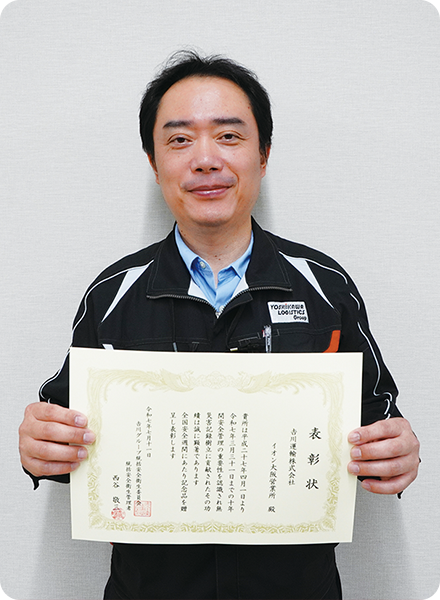 YOSHIKAWA
LOGISTICS
Group
表彰状
吉川運輸株式会社
イオン大阪営業所 殿
貴所は平成二十七年四月一日より
令和七年三月三十一日までの十年
間安全管理の重要性を認識され無
災害記録樹立に貢献されたその功
績は誠に顕著であります
全国安全週間にあたり記念品を贈
呈し表彰します
令和七年七月十一日
吉川グループ統括安全衛生委員会
統括安全衛生管理者
西谷 敬